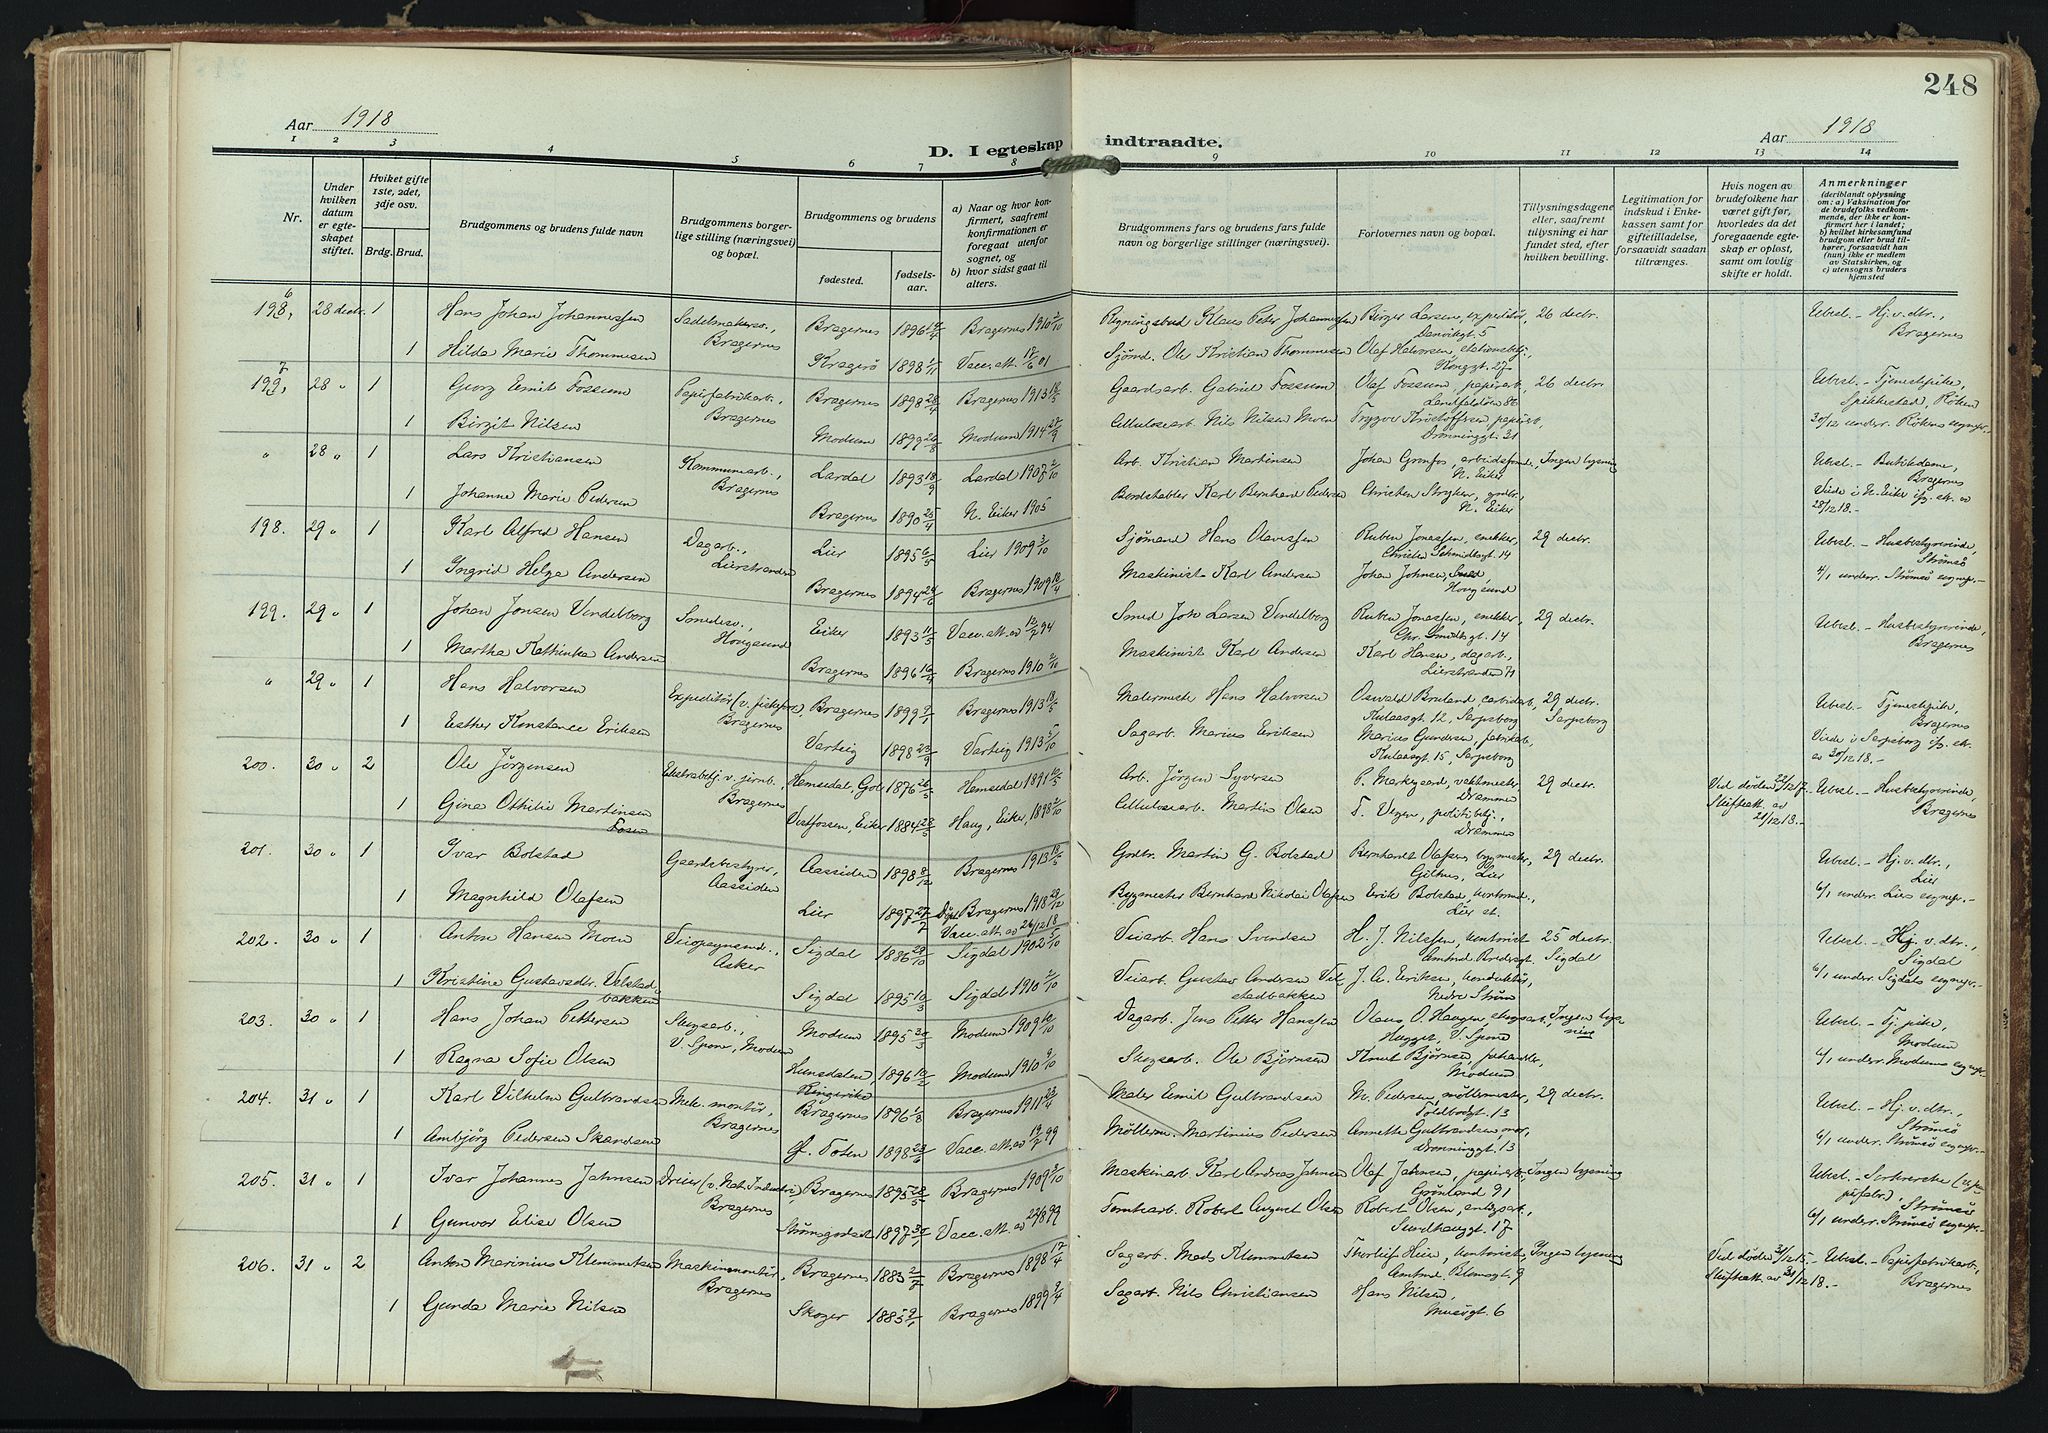 248
Aar 1918
D. I egteskap indtraadte.
Aar 1918
1 2 3 4 5 6 7 8 9 10 11 12 13 14
Nr.
Under hvilken datum er egteskapet stiftet.
Hvilket gifte 1ste, 2det, 3dje osv.
Brdg. Brud.
Brudgommens og brudens fulde navn
Brudgommens borgerlige stilling (næringsvei) og bopæl.
Brudgommens og brudens
fødested.
fødselsaar.
a) Naar og hvor konfirmert, saafremt konfirmationen er foregaat utenfor sognet, og
b) hvor sidst gaat til alters.
Brudgommens fars og brudens fars fulde navn og borgerlige stillinger (næringsvei).
Forlovernes navn og bopæl.
Tillysningsdagene eller, saafremt tillysning ei har fundet sted, efter hvilken bevilling.
Legitimation for indskud i Enkekassen samt for giftetilladelse, forsaavidt saadan tiltrænges.
Hvis nogen av brudefolkene har været gift før, hvorledes da det foregaaende egteskap er opløst, samt om lovlig skifte er holdt.
Anmerkninger (deriblandt oplysning om: a) Vaksination for de brudefolks vedkommende, der ikke er konfirmert her i landet; b) hvilket kirkesamfund brudgom eller brud tilhører, forsaavidt han (hun) ikke er medlem av Statskirken, og c) utensogns bruders hjemsted
196. 28 decbr. 1 Hans Johan Johannessen Sadelmakersv., Bragernes Bragernes 1896 Bragernes 1910 2/10 Regningsbud Klaus Peter Johannessen Birger Larsen, expeditør, Danvikgt. 5 26 decbr. Ubesl. - Hj. v. dtr., Bragernes
1 Hilda Marie Thommesen Kragerø 1898 1/11 Vacc. att. 18/6 01 Sjømd. Ole Kristian Thommesen Olaf Halvorsen, stationsbetj., Konggt. 27
197. 28 " 1 Georg Emil Fossum Papirfabrikarb., Bragernes Bragernes 1898 28/4 Bragernes 1913 18/5 Gaardsarb. Gabriel Fossum Olaf Fossum, papirarb., Landfaldøen 86 26 decbr. Ubesl. - Tjenestepike, Spikkestad, Røken
1 Birgit Nilsen Modum 1899 26/8 Modum 1914 27/9 Cellulosearb. Nils Nilsen Moen Trygve Kristoffersen, papirarb., Dronninggt. 31 30/12 underr. Røkens sognepr.
" 28 " 1 Lars Kristiansen Kommunearb., Bragernes Lardal 1893 18/9 Lardal 1907 2/10 Arb. Kristian Martinsen Johan Grenfos, arbeidsform., N. Eiker Ingen lysning Ubesl. - Butikdame, Bragernes
1 Johanne Marie Pedersen Bragernes 1890 25/4 N. Eiker 1905 Bordstabler Karl Bernhard Pedersen Christen Stryker, grdbr., N. Eiker Viede i N. Eiker ifg. atr. av 28/12 18.
198. 29 " 1 Karl Alfred Hansen Dagarb., Lierstranden Lier 1895 6/5 Lier 1909 3/10 Sjømand Hans Olavssen Ruben Jonassen, snekker, Christen Schmidtsgt. 14 29 decbr. Ubesl. - Husbestyrerinde, Strømsø
1 Ingrid Helga Andersen Bragernes 1894 24/6 Bragernes 1909 18/4 Maskinist Karl Andersen Johan Johnsen, Smed, Hougsund 4/1 underr. Strømsø sognepr.
199. 29 " 1 Johan Jonsen Vendelborg Smedesv., Hougsund Eiker 1893 11/5 Vacc. att. av 12/7 94 Smed Joh. Larsen Vendelborg Ruben Jonassen, snekker, Chr. Smidtsgt. 14 29 decbr. Ubesl. - Husbestyrerinde, Bragernes
1 Martha Kathinka Andersen Bragernes 1896 16/4 Bragernes 1910 2/10 Maskinist Karl Andersen Karl Hansen, dagarb., Lierstranden 71
" 29 " 1 Hans Halvorsen Expeditør (v. fiskeforr.), Bragernes Bragernes 1899 9/1 Bragernes 1913 18/5 Malermester Hans Halvorsen Oswald Bruland, carbidarb., Kulaasgt. 12, Sarpsborg 29 decbr. Sarpsborg Ubesl. - Tjenestepike, Bragernes
1 Esther Konstance Eriksen Varteig 1898 23/9 Varteig 1913 5/10 Sagarb. Marius Eriksen Marius Gundersen, fabrikarb., Kulaasgt. 15, Sarpsborg Viede i Sarpsborg ifg. atr. av 30/12 18.
200. 30 " 2 Ole Jørgensen Ekstrabetj. v. jernb., Bragernes Hemsedal, Gol 1876 26/5 Hemsedal 1891 Arb. Jørgen Syversen P. Markegaard, vaktmester, Drammen 29 decbr. Ved døden 22/12 17. Skifteatt. av 21/12 18. Ubesl. - Husbestyrerinde, Bragernes
1 Gina Othilie Martinsen Fosen Vestfossen, Eiker 1884 23/5 Haug, Eiker, 1898 2/10 Cellulosearb. Martin Olsen T. Vegen, politibetj., Drammen
201. 30 " 1 Ivar Bolstad Gaardsbestyrer, Aassiden Aassiden 1898 8/12 Bragernes 1913 18/5 Godtr. Martin G. Bolstad Bernhardt Olafsen, bygmester, Gilhus, Lier 29 decbr. Ubesl. - Hj. v. dtr., Lier
1 Magnhild Olafsen Lier 1897 27/7 Døpt Bragernes 1918 28/12 Vacc. att. av 26/12 18 Bygmester Bernhard Nikolai Olafsen Erik Bolstad, kontormd., Lier st. 6/1 underr. Lier sognepr.
202. 30 " 1 Anton Hansen Moen Veiopsynsmd., Asker Sigdal 1886 29/10 Sigdal 1902 5/10 Veiarb. Hans Svendsen H. J. Nilssen, kontorist, Amtmd. Bredesgt. 25 decbr. Sigdal Ubesl. - Hj. v. dtr., Sigdal
1 Kristine Gustavsdtr. Velstadbakken Sigdal 1895 10/3 Sigdal 1910 2/10 Veiarb. Gustav Andersen Velstadbakken J. A. Eriksen, konduktør, Nedre Strøm 6/1 underr. Sigdals sognepr.
203. 30 " 1 Hans Johan Pettersen Skogsarb., V. Spone, Modum Modum 1895 30/3 Modum 1909 10/10 Dagarb. Jens Petter Hanssen Olaus O. Haugen, skogsarb., Hugget, V. Spone Ingen lysning Ubesl. - Tj. pike, Modum
1 Ragna Sofie Olsen Hunsdalen, Ringerike 1896 10/2 Modum 1910 9/10 Skogsarb. Ole Bjørnsen Knut Bjørnsen, Modum 6/1 underr. Modums sognepr.
204. 31 " 1 Karl Vilhelm Gulbrandsen Mek. montør, Bragernes Bragernes 1896 1/8 Bragernes 1911 23/4 Maler Emil Gulbrandsen M. Pedersen, møllemester, Toldbodgt. 13 29 decbr. Ubesl. - Hj. v. dtr., Strømsø
1 Ambjørg Pedersen Skandsen Ø. Toten 1898 23/6 Vacc. att. av 19/7 99 Møllerm. Martinius Pedersen Annette Gulbrandsen, mor, Dronninggt. 13 6/1 underr. Strømsø sognepr.
205. 31 " 1 Ivar Johannes Jahnsen Dreier (v. Nat. Industri), Bragernes Bragernes 1895 28/5 Bragernes 1909 3/10 Maskinarb. Karl Andreas Jahnsen Olaf Jahnsen, papirarb., Grønland 91 Ingen lysning Ubesl. - Sorterske (v. papirfabr.), Strømsø
1 Gunvor Elise Olsen Strømsgodset 1897 30/1 Vacc. att. av 22/8 99 Tomtearb. Robert August Olsen Robert Olsen, anlegsarb., Sundhauggt. 17 6/1 underr. Strømsø sognepr.
206. 31 " 2 Anton Marinius Klemmetsen Maskinmontør, Bragernes Bragernes 1883 2/7 Bragernes 1898 17/4 Sagarb. Mads Klemmetsen Thorleif Heier, kontorist, Amtmd. Blomsgt. 9 Ingen lysning Ved døden 31/12 15. Skifteatt. av 31/12 18. Ubesl. - Papirfabrikarb., Bragernes
1 Gunda Marie Nilsen Skoger 1885 9/1 Bragernes 1899 9/4 Sagarb. Nils Christiansen Hans Nilsen, Museigt. 6